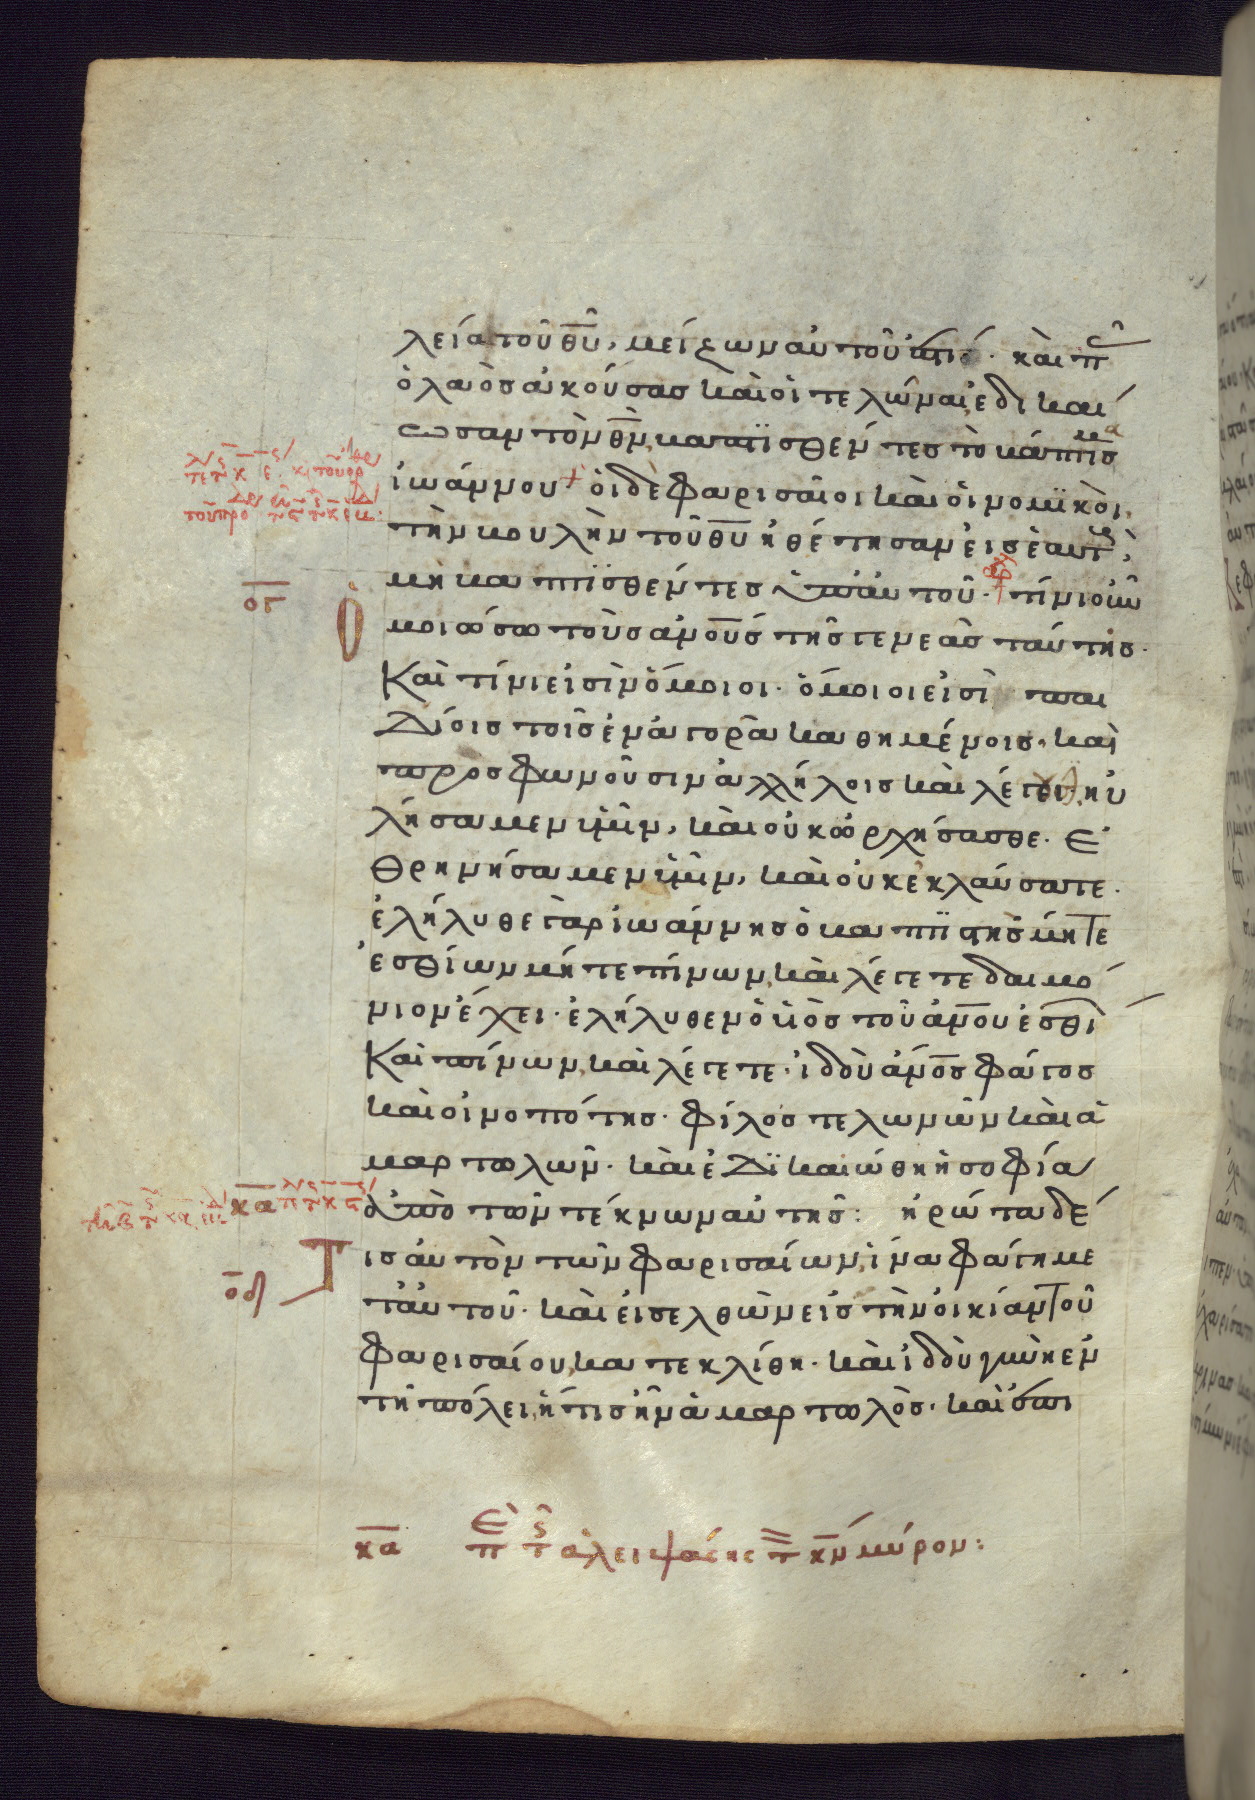 λεία τοῦ θ̅υ̅, μείζων αὐτοῦ ἐστι · καὶ π
ὁ λαὸς ἀκούσας καὶ οἱ τελῶναι ἐδικαί
ωσαν τὸν θ̅ν̅, βαπτισθέντες τὸ βάπτισμα
ἰωάννου + οἱ δὲ φαρισαῖοι καὶ οἱ νομικοὶ,
τὴν βουλὴν τοῦ θ̅υ̅ ἠθέτησαν εἰς ἑαυτοὺς,
μὴ βαπτϊσθέντες ὑπ' αὐτοῦ · τίνι οὖν
ο̅γ̅
Ὁ
μοιώσω τοὺς α̅ν̅ο̅υ̅ς τῆς γενεᾶς ταύτης ·
Καὶ τίνι εἰσὶν ὅμοιοι · ὅμοιοι εἰσὶ παι
δίοις τοῖς ἐν ἀγορᾶ καθημένοις · καὶ
προσφωνοῦσιν ἀλλήλοις καὶ λέγει · ηὐ
λήσαμεν ὑμῖν, καὶ οὐκ ὠρχήσασθε · ἐ
θρηνήσαμεν ὑμῖν, καὶ οὐκ ἐκλαύσατε ·
ἐλήλυθε γὰρ ἰωάννης ὁ βαπτϊστὴς μήτε
ἐσθίων μήτε πίνων, καὶ λέγετε δαιμό
νιον ἔχει · ἐλήλυθεν ὁ υ̅ἱὸς τοῦ α̅ν̅ο̅υ̅ ἐσθί
Καὶ πίνων, καὶ λέγετε · ἰδοὺ α̅ν̅ο̅ς φάγος
καὶ οἰνοπότης · φίλος τελωνῶν καὶ ἁ
μαρτωλῶν · καὶ ἐδϊκαιώθη ἡ σοφία
κ̅α̅
ἀπὸ τῶν τέκνων αὐτῆς : ἠρώτα δέ
Τ
ις αὐτὸν τῶν φαρισαίων, ἵνα φάγη με
ο̅δ̅
τ' αὐτοῦ · καὶ εἰσελθὼν εἰς τὴν οἰκίαν τοῦ
φαρισαίου, κατεκλίθη · καὶ ἰδοὺ γυνὴ ἐν
τῇ πόλει, ἥτις ἦν ἁμαρτωλὸς · καὶ ἐπι
κ̅α̅ πε τς ἀλειψάσης τ κ̅ν̅ μύρον :